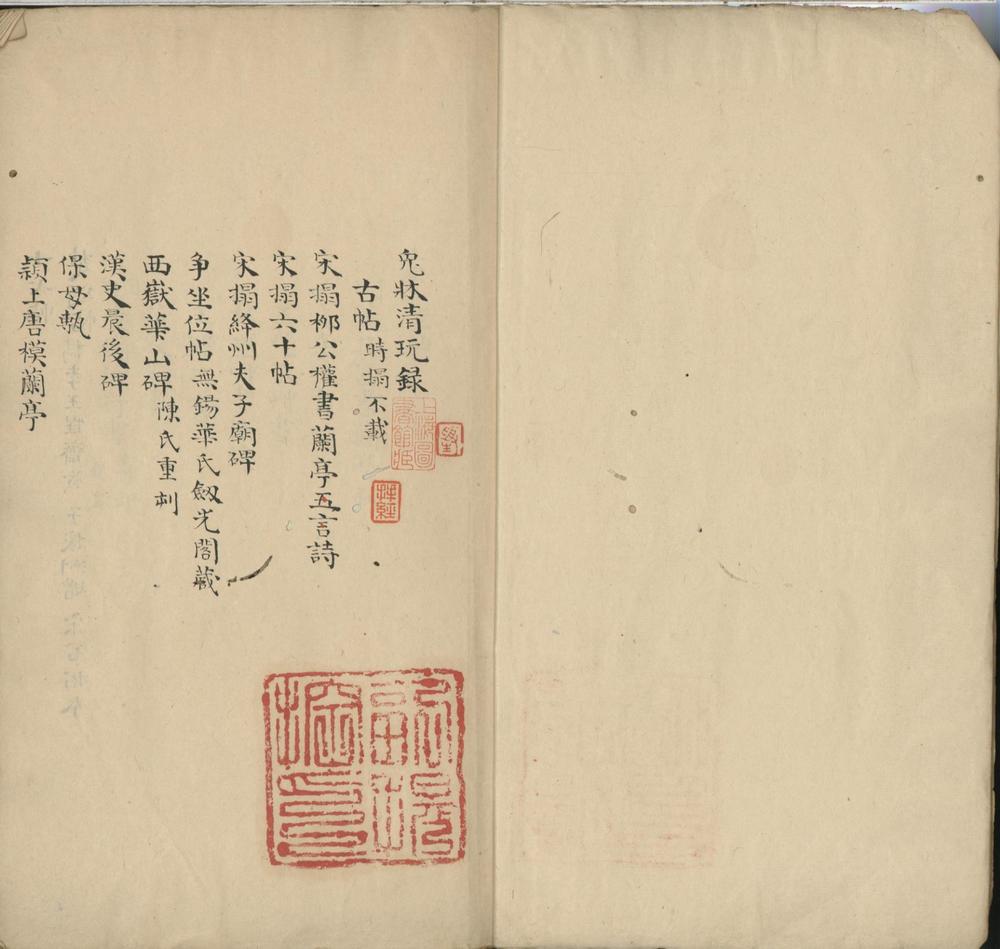 兔牀清玩録
古帖時搨不載
宋搨栁公權書蘭亭五言詩
宋搨六十帖
宋搨絳州夫子廟碑
爭坐位帖無錫華氏劔光閣藏
西嶽華山碑陳氏重刋
漢史晨後碑
保母甎
潁上唐模蘭亭
上海圖書館藏